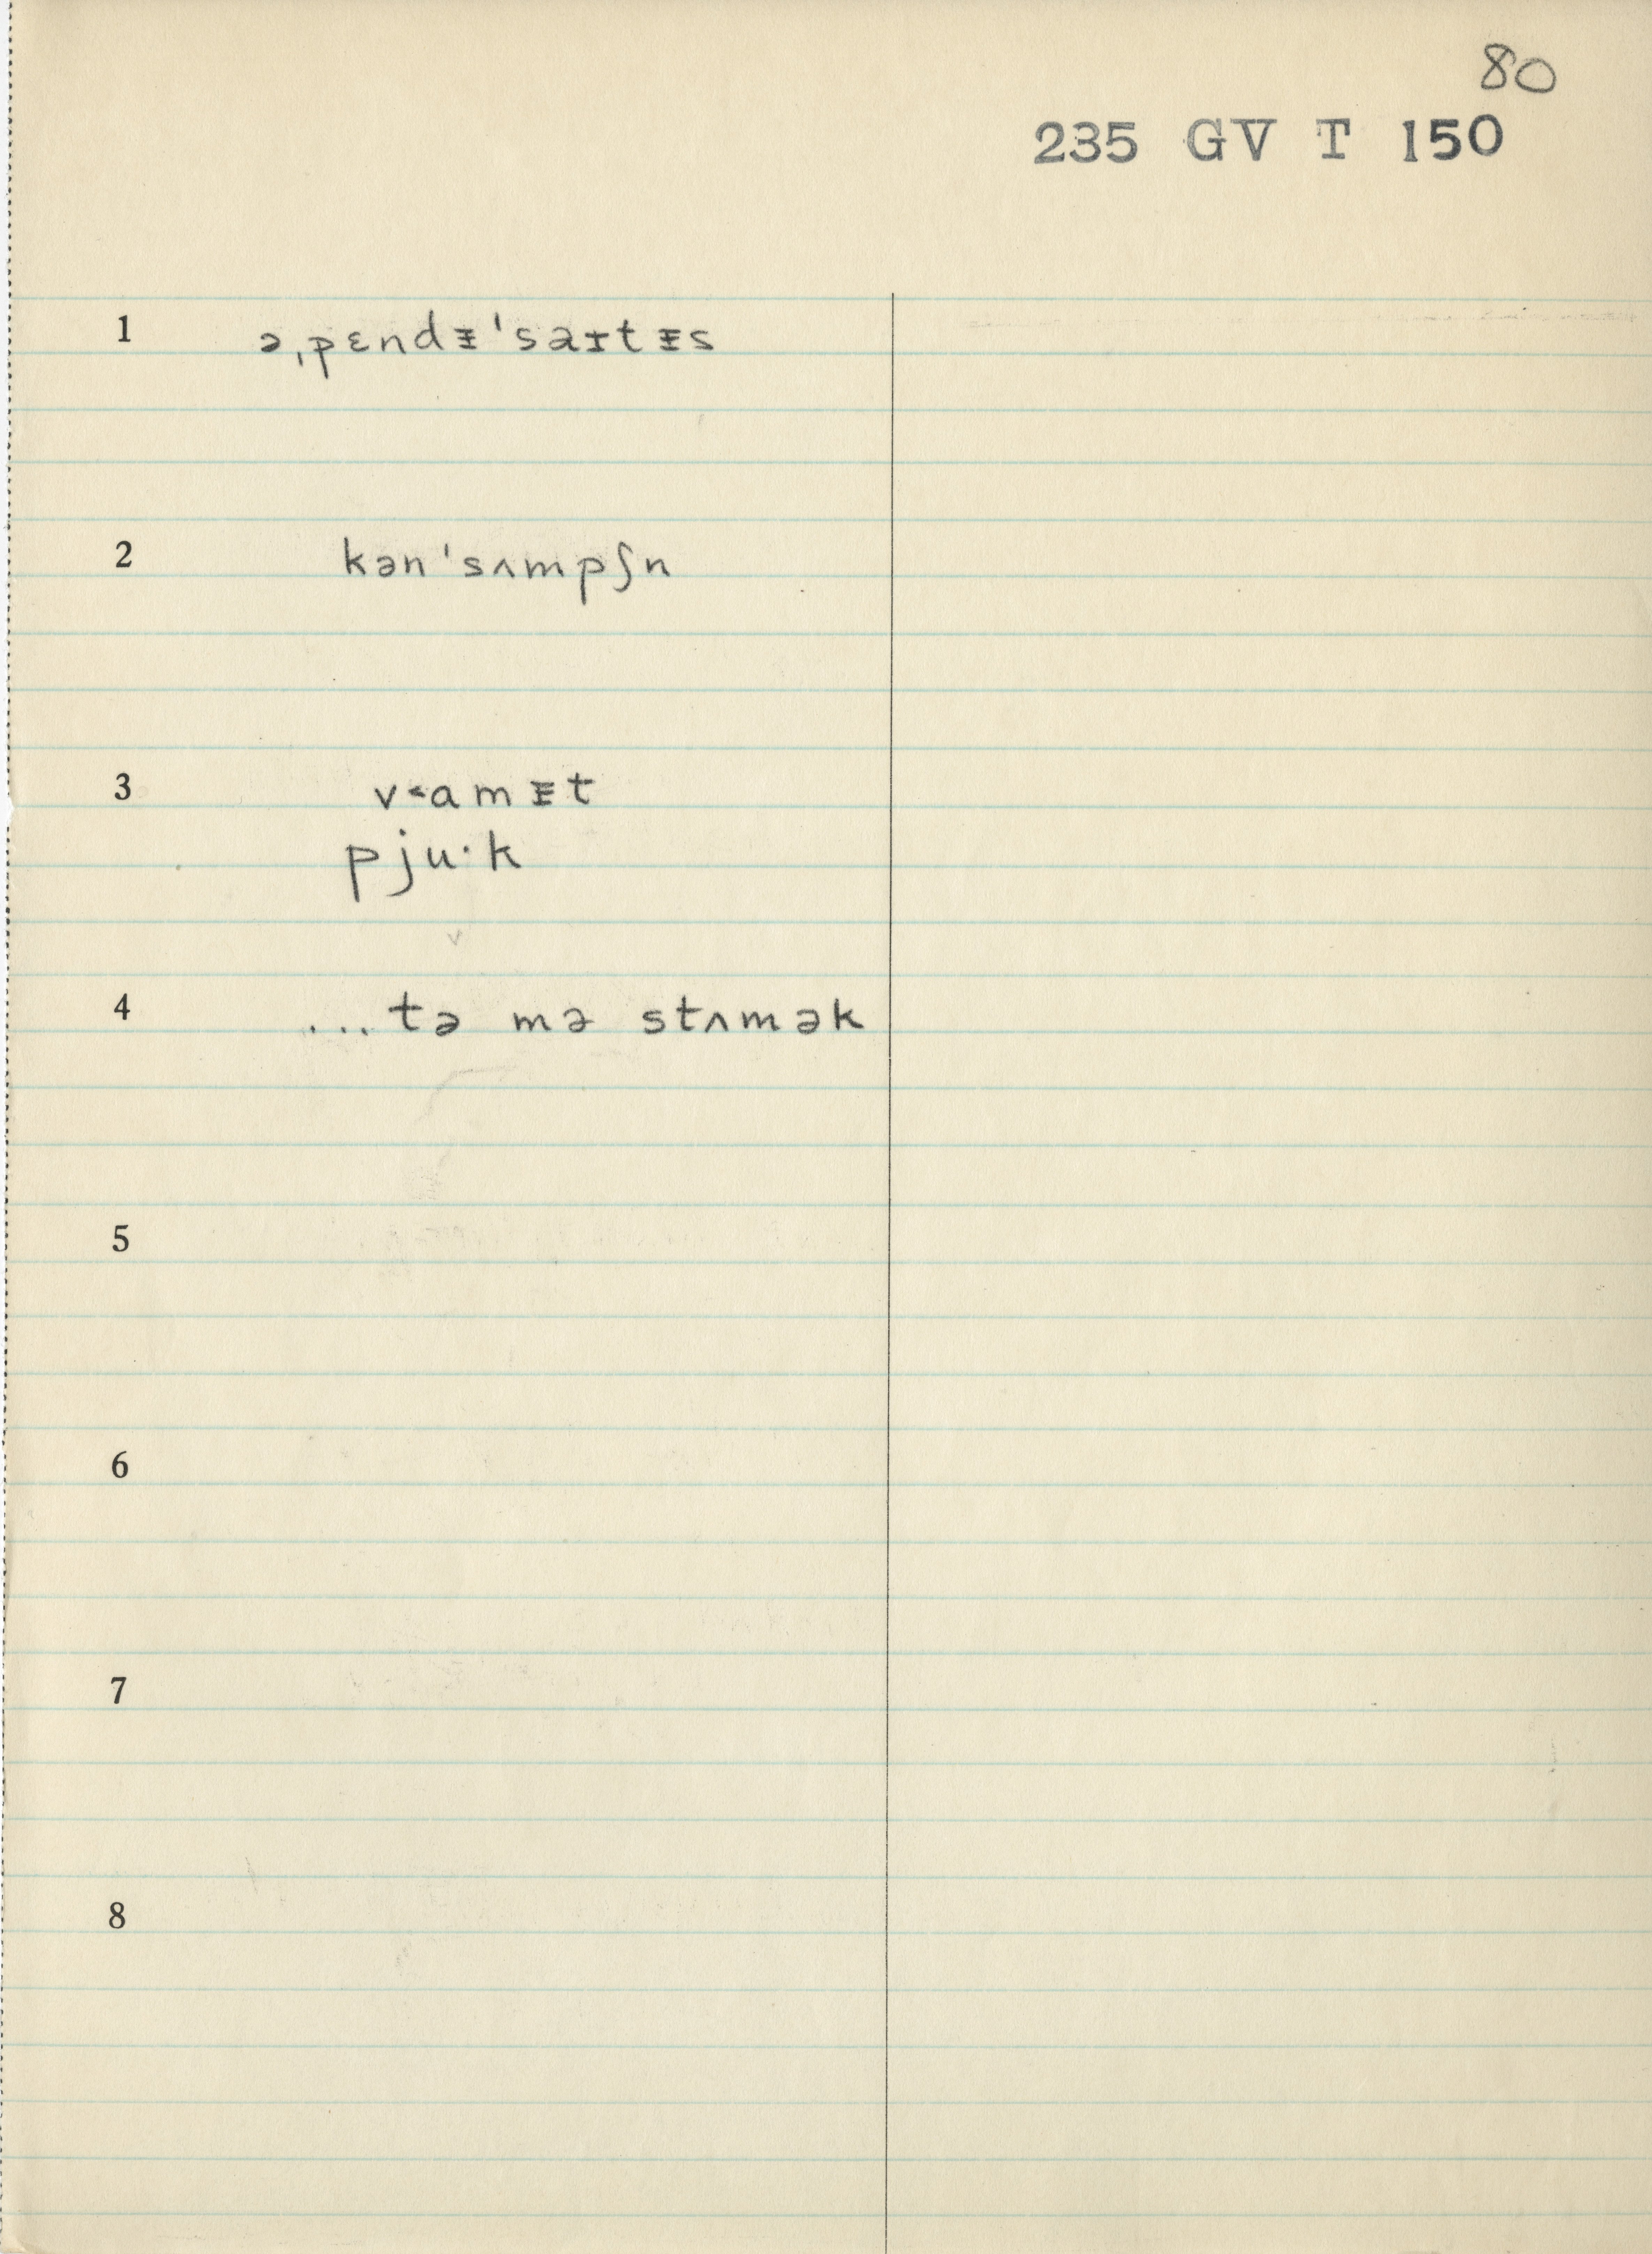 80
235 GV T 150
1 ə͵pɛndᵻ'saɪtᵻs
2 kən'sʌmpʃn
3 v˂amᵻt
pju·k
4 ...tə mə stʌmək
5
6
7
8